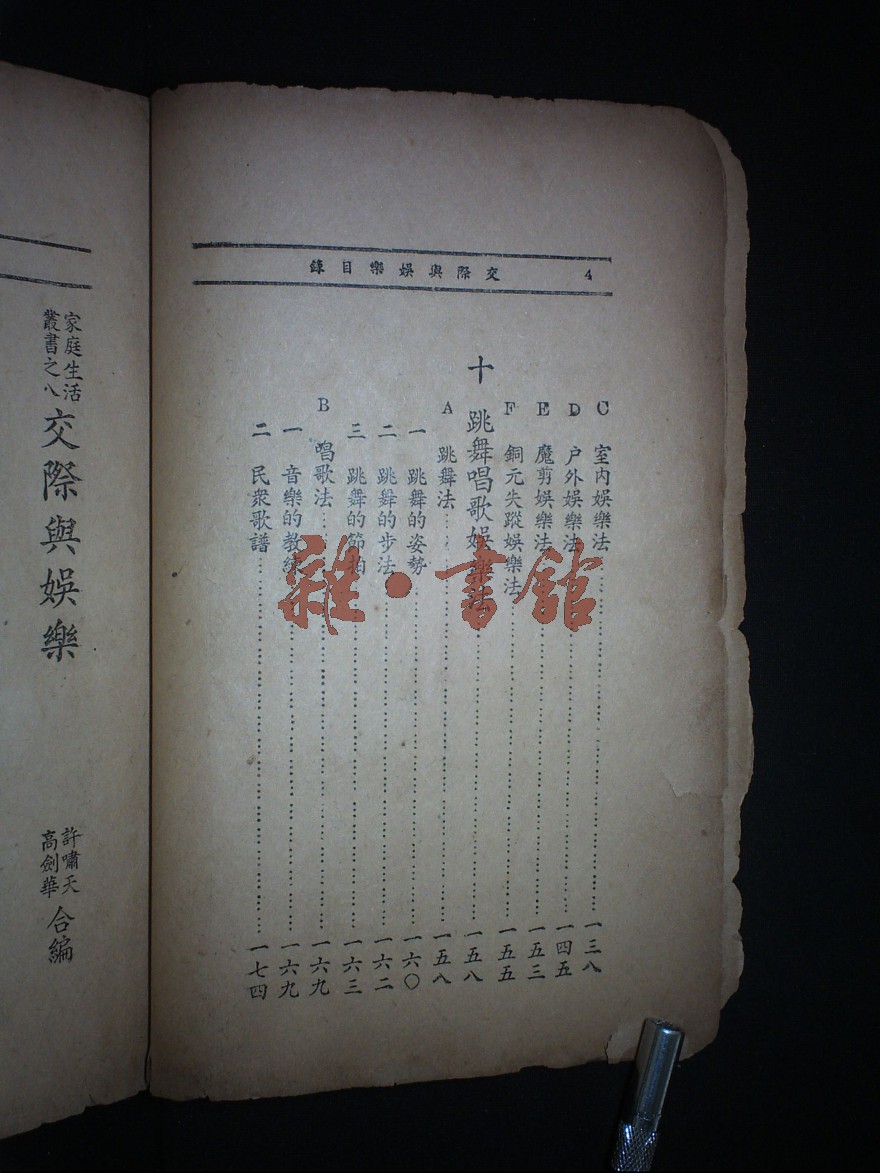 交際與娛樂目錄 4
C 室內娛樂法……一三八
D 户外娛樂法……一四五
E 魔剪娛樂法……一五三
F 銅元失蹤娛樂法……一五五
十 跳舞唱歌娛樂法……一五八
A 跳舞法……一五八
一 跳舞的姿勢……一六〇
二 跳舞的步法……一六二
三 跳舞的節拍……一六三
B 唱歌法……一六九
一 音樂的教練……一六九
二 民衆歌譜……一七四
家庭生活
叢書之八
交際與娛樂
許嘯天
高劍華
合編
雜·書館